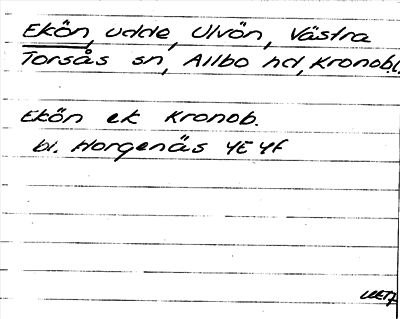 Ekön, udde, Ulvön, Västra
Torsås sn, Allbo hd, Kronobl.
Ekön ek Kronob.
bl. Horgenäs 4E 4f